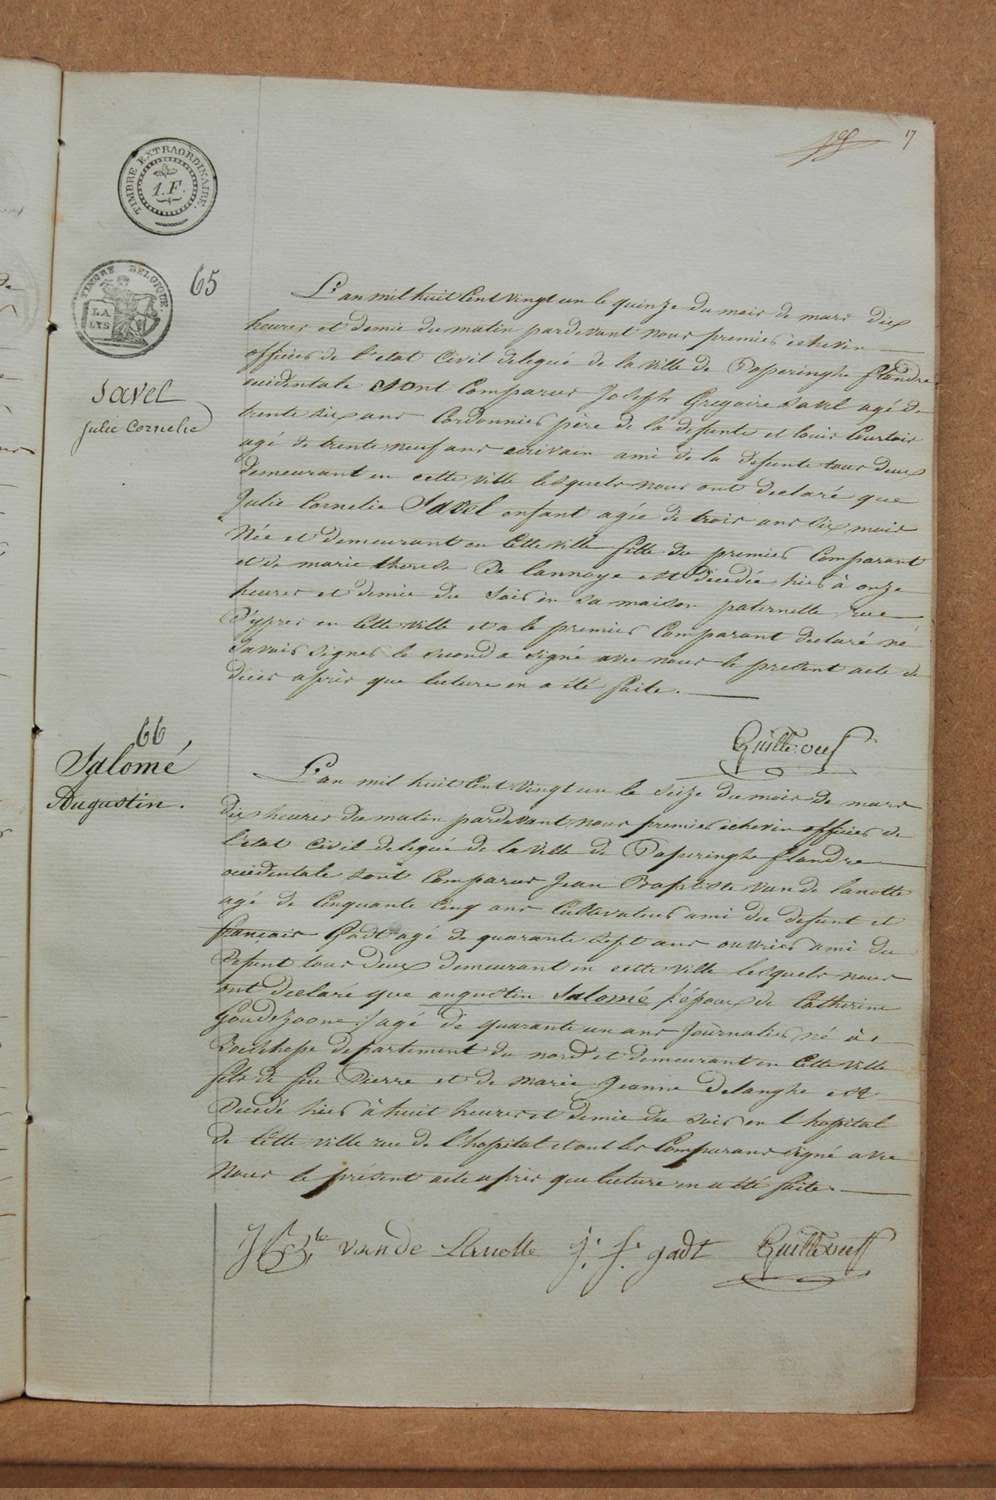 17
TIMBRE EXTRAORDINAIRE
1.F.
TIMBRE BELGIQUE
LA LYS
65
Savel
Julie Cornelie
L'an mil huit Cent vingt un le quinze du mois de mars dix
heures et demie du matin pardevant nous premier echevin
officier de l'etat Civil delegué de la ville de Poperinghe flandre
occidentale sont Comparus Joseph Gregoire Savel agé de
trente six ans Cordonnier père de la defunte et louis Courtois
agé de trente neuf ans ecrivain ami de la defunte tous deux
demeurant en cette ville lesquels nous ont declaré que
Julie Cornelie Savel enfant agée de trois ans six mois
Née et demeurant en Cette ville fille du premier Comparant
et de marie therese De lannoye est decedée hier à onze
heures et demie du Soir en sa maison paternelle rue
D'ypres en Cette ville et a le premier Comparant declaré né
Savoir signer le second a signé avec nous le present acte de
décès après que lecture en a été faite.
66
Salomé
Augustin.
L'an mil huit Cent vingt un le Seize du mois de mars
Dix heures du matin pardevant nous premier echevin officier de
l'etat Civil delegué de la Ville de Poperinghe flandre
occidentale sont Comparus Jean Baptiste Van de lanotte
agé de Cinquante Cinq ans Cultivateur ami du defunt et
français Gadt agé de quarante sept ans ouvrier ami du
Defunt tous deux demeurant en cette ville lesquels nous
ont declaré que augustin Salomé époux de Catherine
Goudezoone agé de quarante un ans Journalier né à
Boeschepe departement du nord et demeurant en Cette Ville
fils de feu Pierre et de marie Jeanne Delanghe est
Decedé hier à huit heures et demie du soir en l'hopital
de Cette ville rue de l'hopital et ont les Comparans signé avec
Nous le présent acte après que lecture en a été faite.
van de Lanotte J. f. gadt